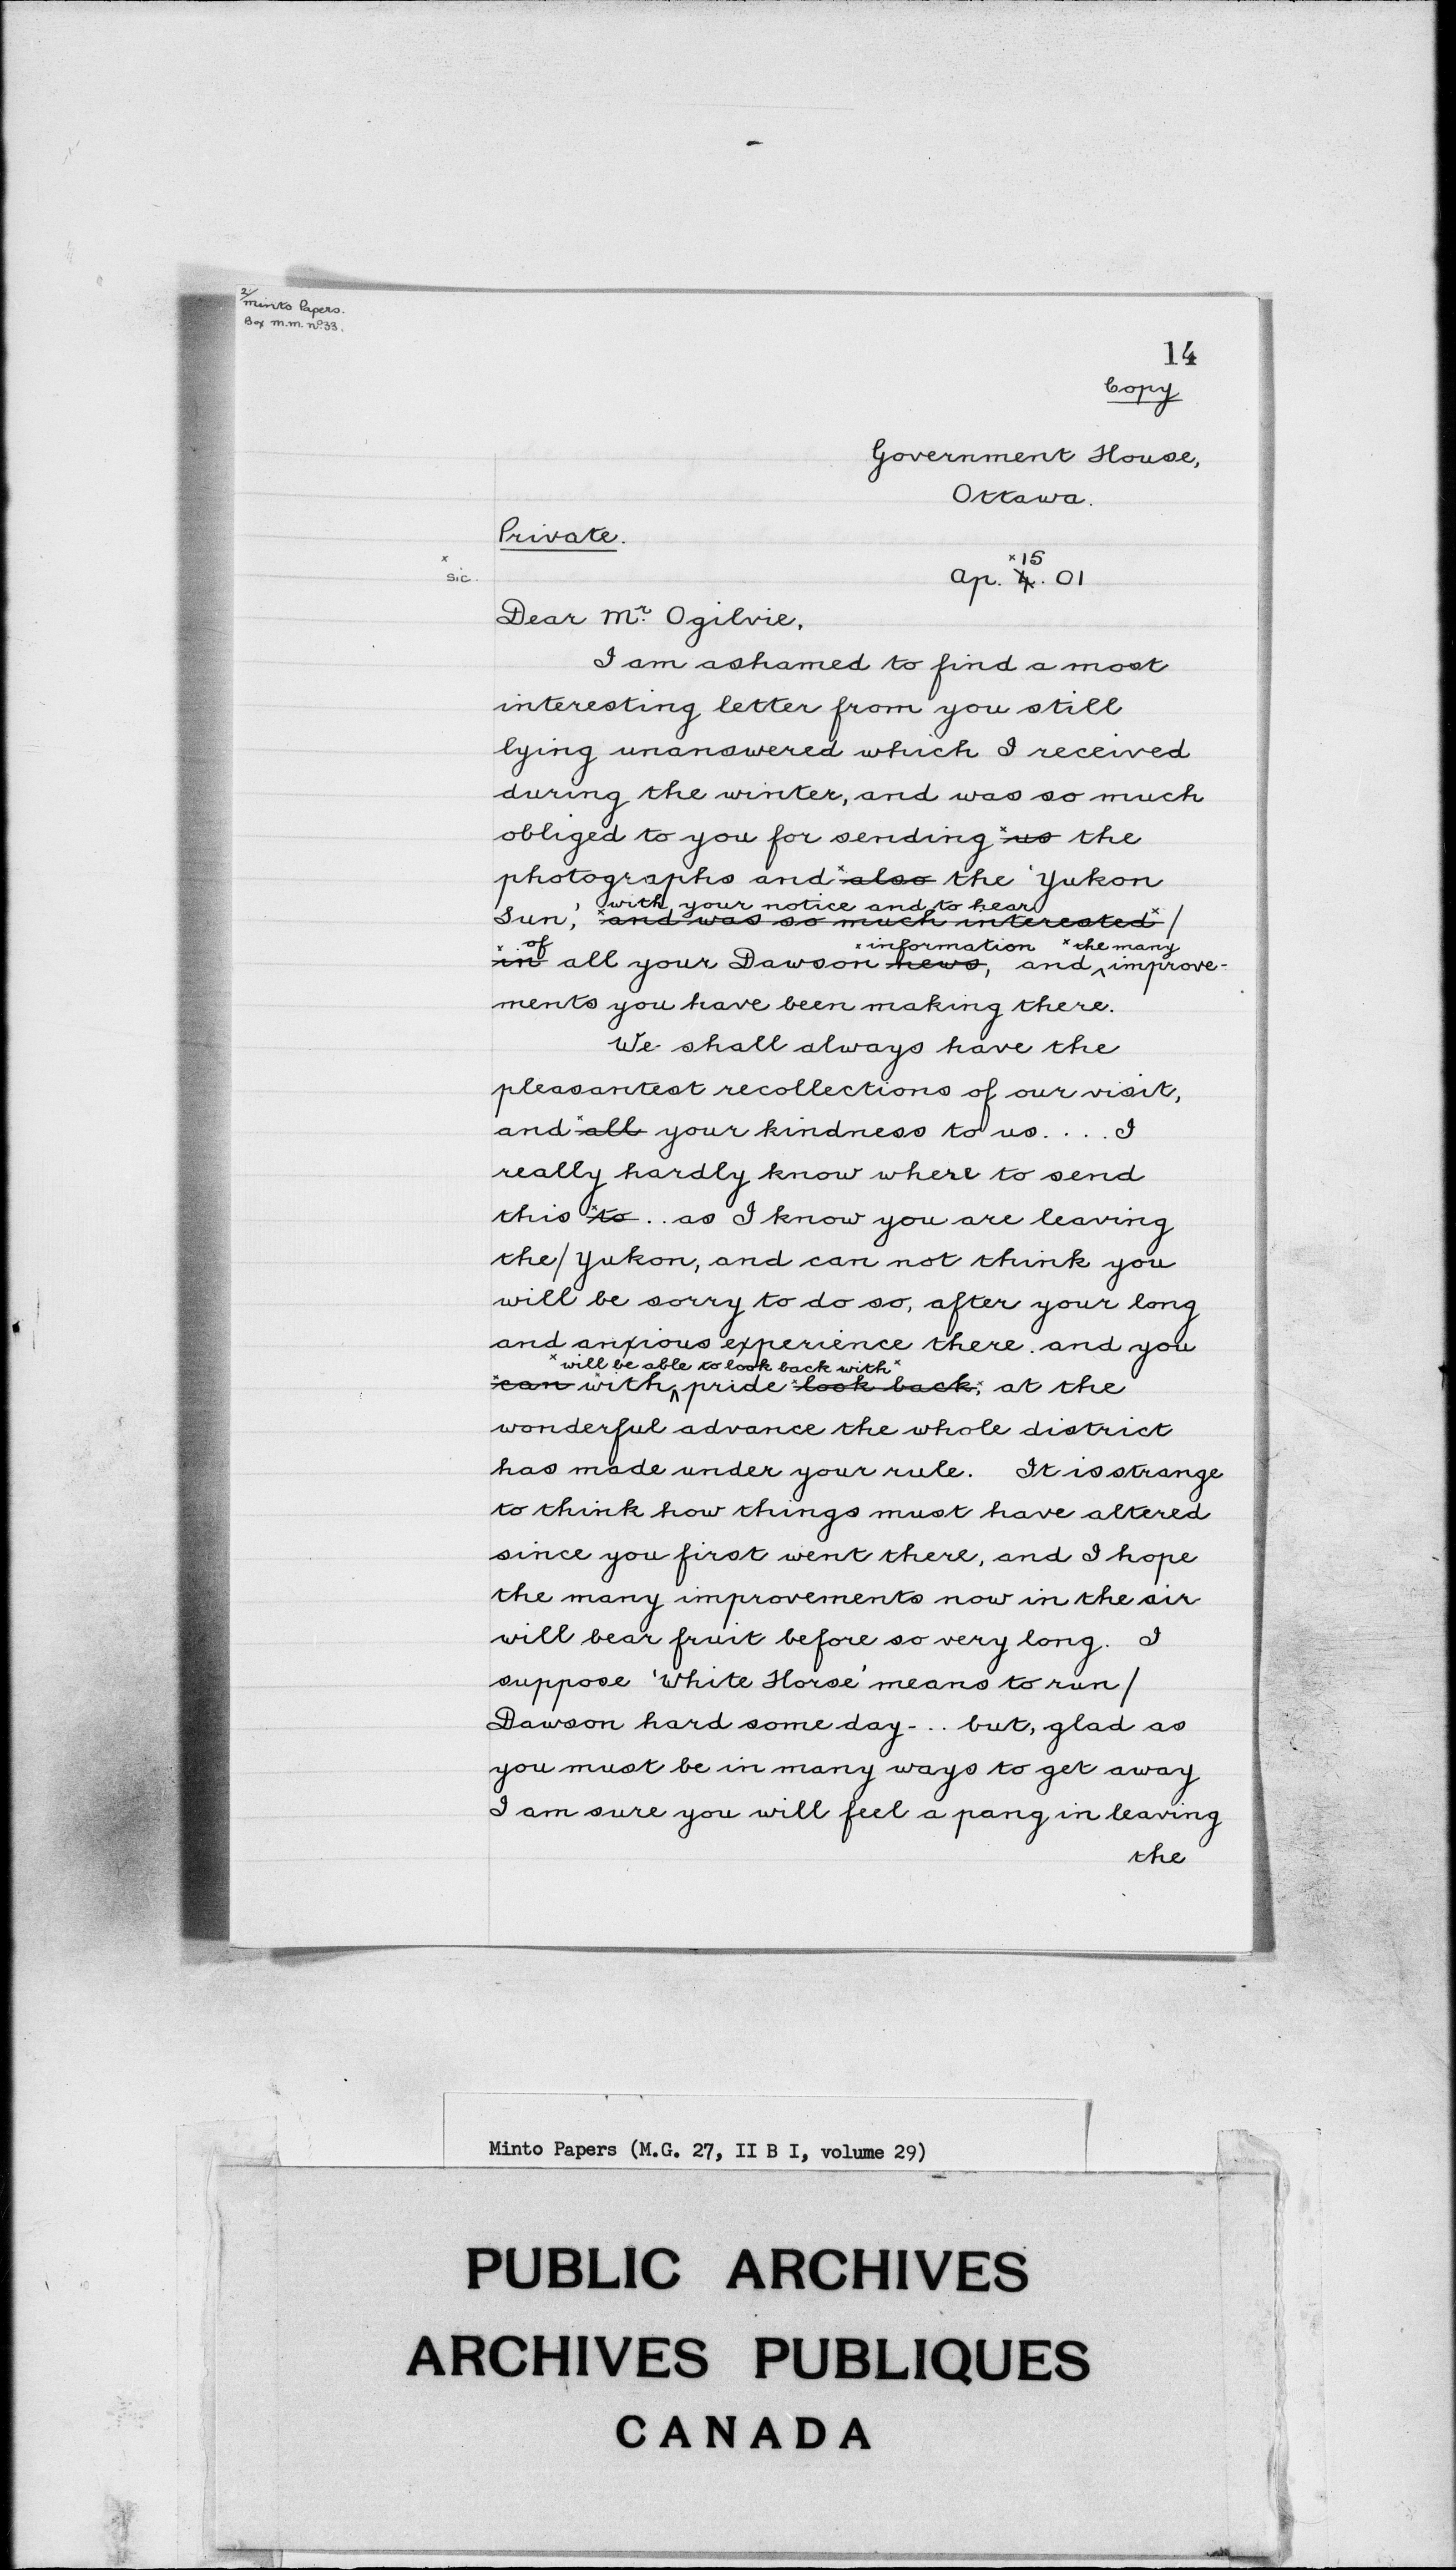 2/
Minto Papers.
Box M.M. nº 33.
14
Copy
Government House,
Ottawa.
Private.
x
sic.
x 15
Ap. 4. 01
Dear Mr. Ogilvie,
I am ashamed to find a most
interesting letter from you still
lying unanswered which I received
during the winter, and was so much
obliged to you for sending x us the
photographs and x also the 'Yukon
with your notice and to hear
Sun,' x and was so much interested x /
of x information x the many
x in all your Dawson news, and ^ improve-
ments you have been making there.
We shall always have the
pleasantest recollections of our visit,
and x all your kindness to us. . . . I
really hardly know where to send
this x to . . as I know you are leaving
the/ Yukon, and can not think you
will be sorry to do so, after your long
and anxious experience there. and you
x will be able to look back with x
x can with ^ pride x look back, x at the
wonderful advance the whole district
has made under your rule. It is strange
to think how things must have altered
since you first went there, and I hope
the many improvements now in the air
will bear fruit before so very long. I
suppose 'White Horse' means to run /
Dawson hard some day - . . but, glad as
you must be in many ways to get away
I am sure you will feel a pang in leaving
the
Minto Papers (M.G. 27, II B I, volume 29)
PUBLIC ARCHIVES
ARCHIVES PUBLIQUES
CANADA